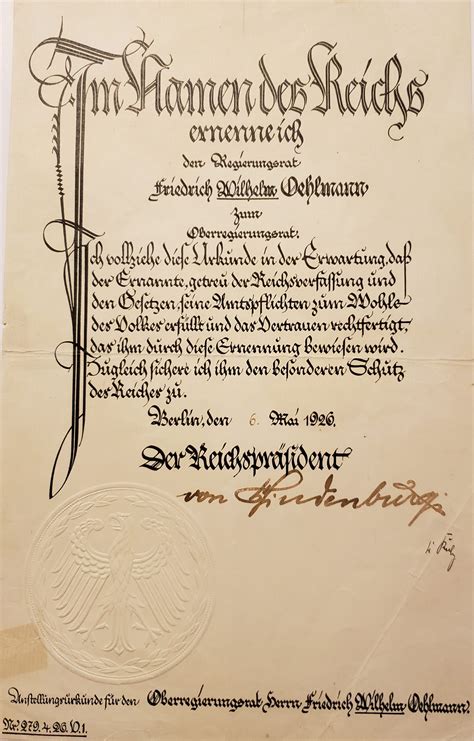 Im Namen des Reichs
ernenne ich
den Regierungsrat
Friedrich Wilhelm Oehlmann
zum
Oberregierungsrat.
Ich vollziehe diese Urkunde in der Erwartung, daß
der Ernannte, getreu der Reichsverfassung und
den Gesetzen, seine Amtspflichten zum Wohle
des Volkes erfüllt und das Vertrauen rechtfertigt,
das ihm durch diese Ernennung bewiesen wird.
Zugleich sichere ich ihm den besonderen Schutz
des Reiches zu.
Berlin, den 6. Mai 1926.
Der Reichspräsident
von Hindenburg
Anstellungsurkunde für den Oberregierungsrat Herrn Friedrich Wilhelm Oehlmann.
Nr. 279. 4. 26. V. 1.